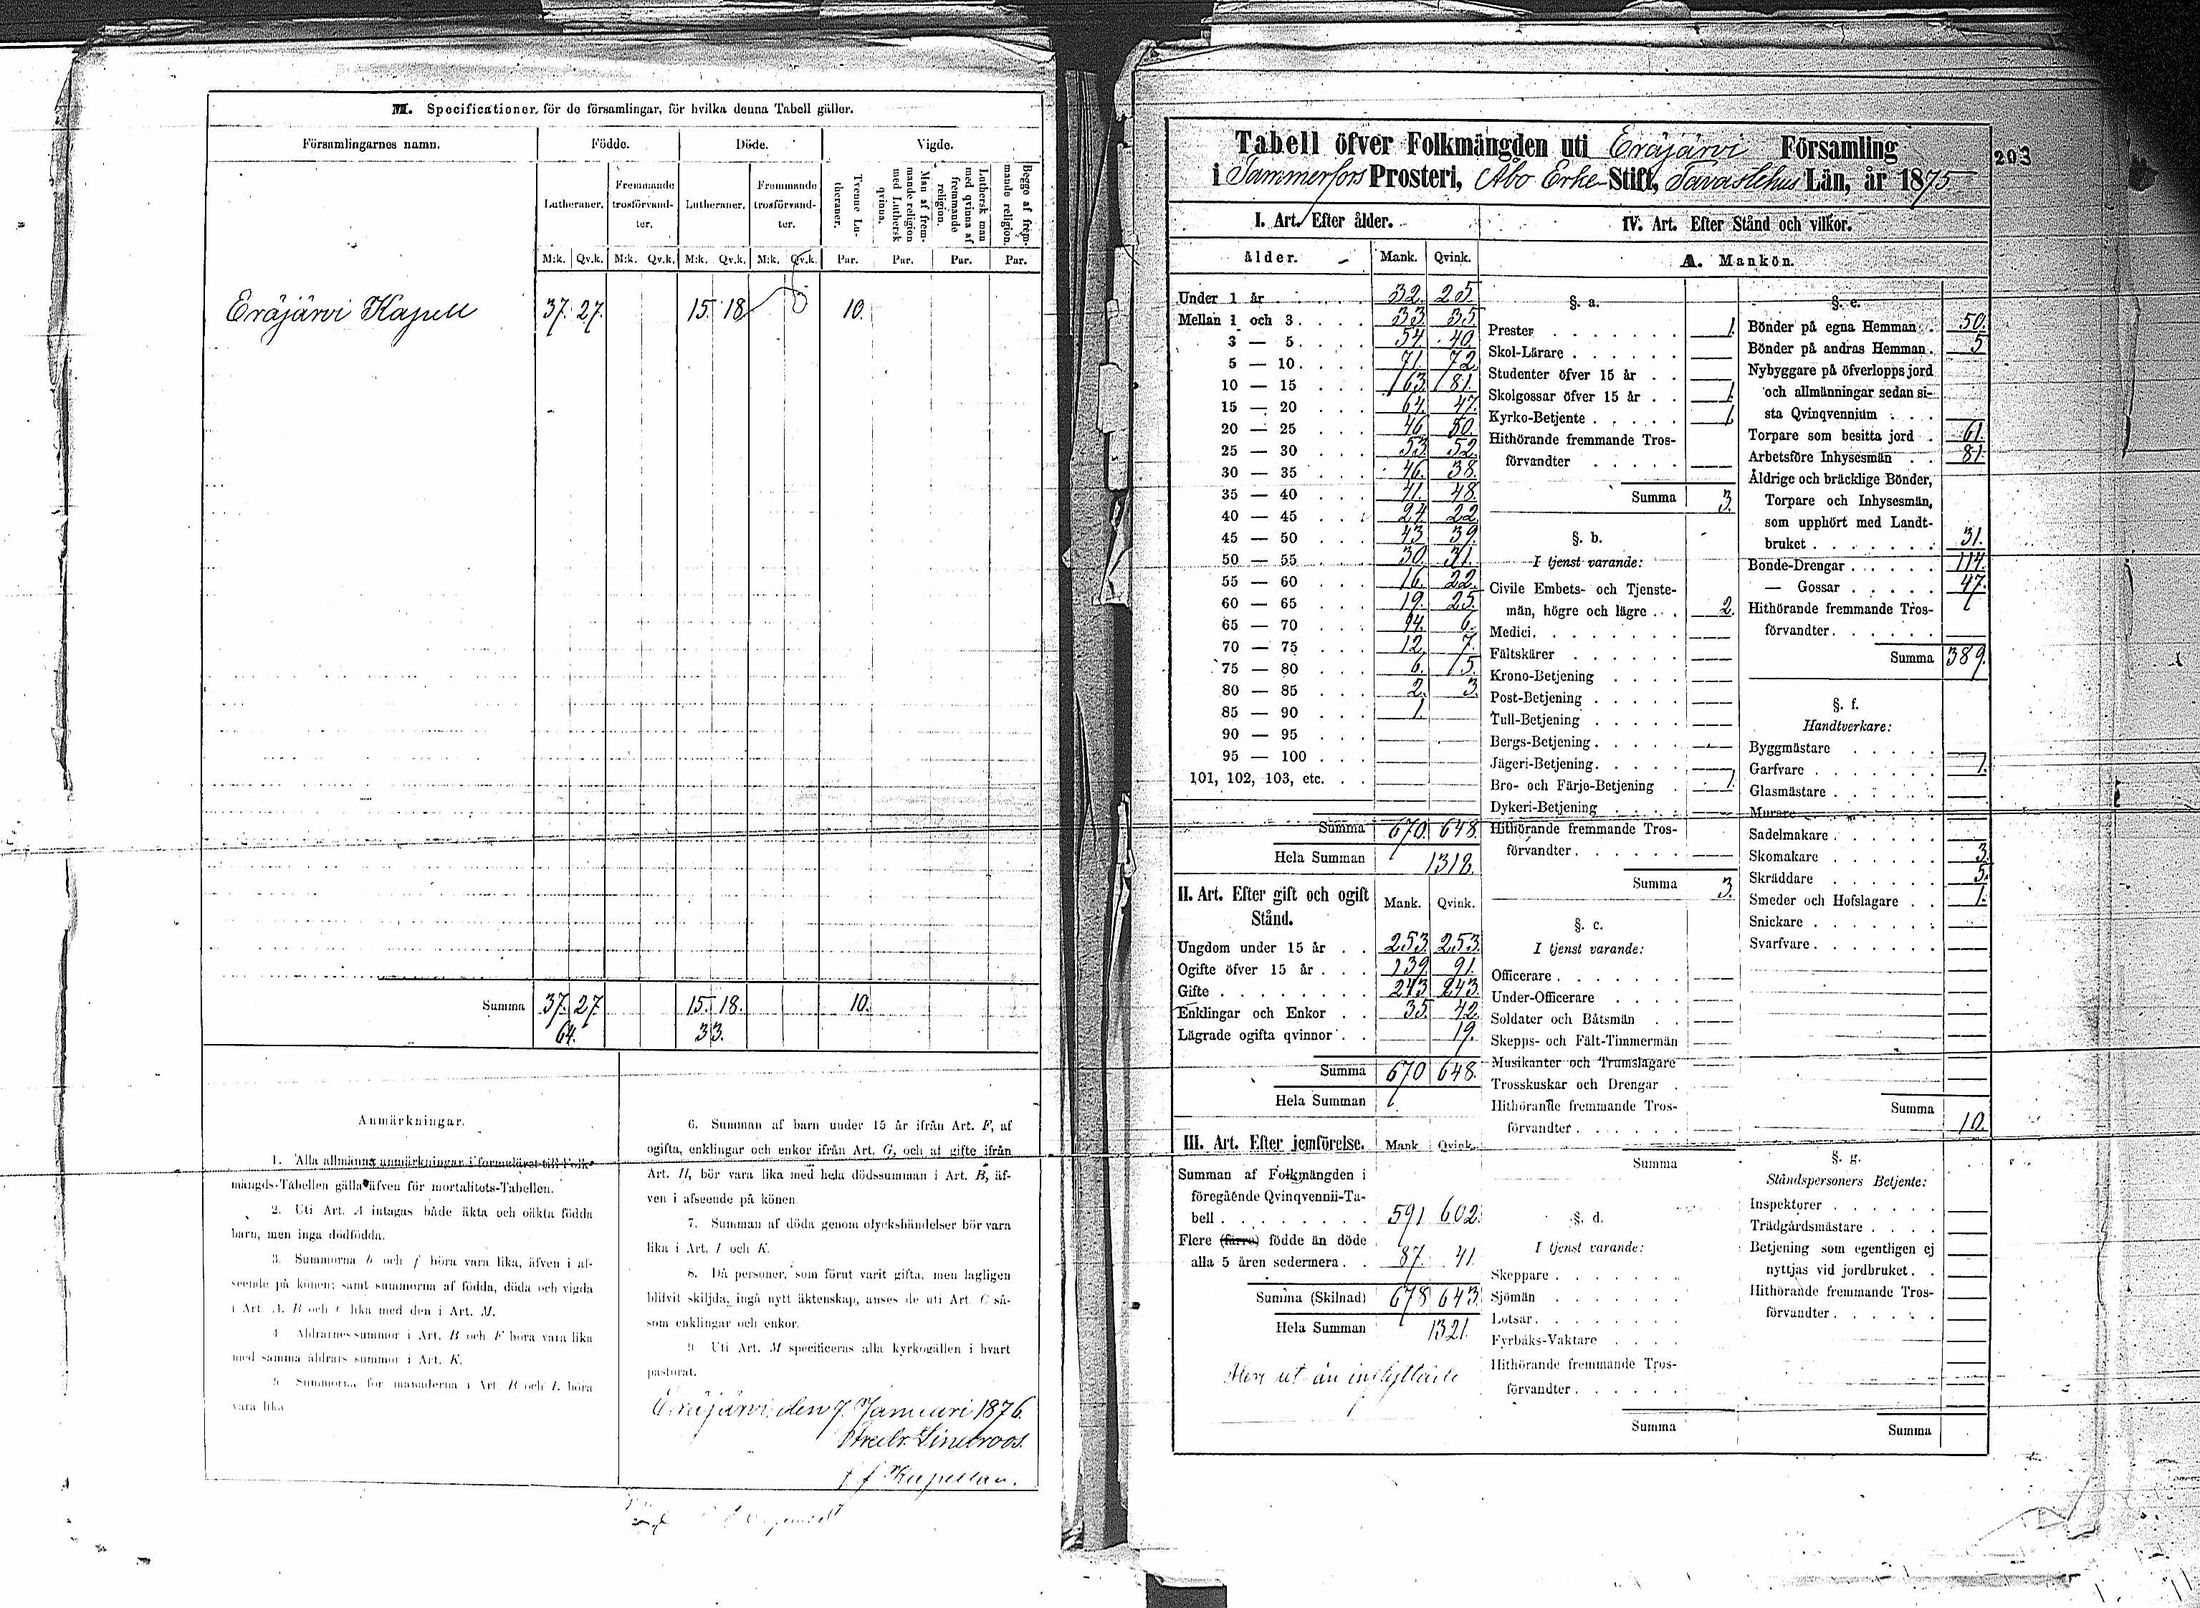 M. Specificationer, för de församlingar, för hvilka denna Tabell gäller.
Församlingarnes namn. Födde. Döde. Vigde.
Lutheraner. Fremmande trosförvandter. Lutheraner. Fremmande trosförvandter. Tvenne Lutheraner. Man af fremmande religion med Luthersk qvinna. Luthersk man med qvinna af fremmande religion. Begge af fremmande religion.
M:k. Qv.k. M:k. Qv.k. M:k. Qv.k. M:k. Qv.k. Par. Par. Par. Par.
Eräjärvi Kapell 37. 27. 15. 18 10.
Summa 37. 27. 15. 18. 10.
64. 33.
Anmärkningar.
1. Alla allmänna anmärkningar i formuläret till Folk-
mängds-Tabellen gälla äfven för mortalitets-Tabellen.
2. Uti Art. A intagas både äkta och oäkta födda
barn, men inga dödfödda.
3. Summorna b och f böra vara lika, äfven i af-
seende på könen; samt summorna af födda, döda och vigda
i Art. A. B och C lika med den i Art. M.
4. Åldrarnes summor i Art. B och F böra vara lika
med samma åldrars summor i Art. K.
5. Summorna för månaderna i Art. B och L böra
vara lika.
6. Summan af barn under 15 år ifrån Art. F, af
ogifta, enklingar och enkor ifrån Art. G, och af gifte ifrån
Art. H, bör vara lika med hela dödssumman i Art. B, äf-
ven i afseende på könen.
7. Summan af döda genom olyckshändelser bör vara
lika i Art. I och K.
8. Då personer, som förut varit gifta, men lagligen
blifvit skiljda, ingå nytt äktenskap, anses de uti Art. C så-
som enklingar och enkor.
9. Uti Art. M specificeras alla kyrkogällen i hvart
pastorat.
Eräjärvi, den 7. Januari 1876.
Fredr. Lindroos.
f. f. Kapellan.
Tabell öfver Folkmängden uti Eräjärvi Församling
203
i Tammerfors Prosteri, Åbo Erke-Stift, Tavastehus Län, år 1875
I. Art. Efter ålder.
ålder. Mank. Qvink.
Under 1 år 32. 25.
Mellan 1 och 3 33 35.
3 — 5 54 40.
5 — 10 71. 72.
10 — 15 63. 81.
15 — 20 64. 47.
20 — 25 46 50.
25 — 30 53 52.
30 — 35 46. 38.
35 — 40 41. 48.
40 — 45 24. 22
45 — 50 43 39.
50 — 55 30. 31.
55 — 60 16. 22.
60 — 65 19. 25.
65 — 70 14. 6.
70 — 75 12. 7.
75 — 80 6. 5.
80 — 85 2. 3.
85 — 90 1.
90 — 95
95 — 100
101, 102, 103, etc.
Summa 670. 648.
Hela Summan 1318.
II. Art. Efter gift och ogift Stånd.
Mank. Qvink.
Ungdom under 15 år 253. 253.
Ogifte öfver 15 år 139. 91.
Gifte 243 243.
Enklingar och Enkor 35. 42.
Lägrade ogifta qvinnor 19.
Summa 670 648.
Hela Summan
III. Art. Efter jemförelse. Mank Qvink.
Summan af Folkmängden i
föregående Qvinqvennii-Ta-
bell 591 602.
Flere (färre) födde än döde
alla 5 åren sedermera 87. 41.
Summa (Skilnad) 678 643.
Hela Summan 1321.
Flere ut än inflyttade
IV. Art. Efter Stånd och vilkor.
A. Mankön.
§. a.
Prester 1.
Skol-Lärare
Studenter öfver 15 år
Skolgossar öfver 15 år 1.
Kyrko-Betjente 1.
Hithörande fremmande Tros-
förvandter
Summa 3.
§. b.
I tjenst varande:
Civile Embets- och Tjenste-
män, högre och lägre 2.
Medici
Fältskärer
Krono-Betjening
Post-Betjening
Tull-Betjening
Bergs-Betjening
Jägeri-Betjening
Bro- och Färje-Betjening 1.
Dykeri-Betjening
Hithörande fremmande Tros-
förvandter
Summa 3.
§. c.
I tjenst varande:
Officerare
Under-Officerare
Soldater och Båtsmän
Skepps- och Fält-Timmermän
Musikanter och Trumslagare
Trosskuskar och Drengar
Hithörande fremmande Tros-
förvandter
Summa
§. d.
I tjenst varande:
Skeppare
Sjömän
Lotsar
Fyrbåks-Vaktare
Hithörande fremmande Tros-
förvandter
Summa
§. e.
Bönder på egna Hemman 50.
Bönder på andras Hemman 5
Nybyggare på öfverlopps jord
och allmänningar sedan si-
sta Qvinqvennium
Torpare som besitta jord 61.
Arbetsföre Inhysesmän 81.
Åldrige och bräcklige Bönder,
Torpare och Inhysesmän,
som upphört med Landt-
bruket 31.
Bonde-Drengar 114.
— Gossar 47.
Hithörande fremmande Tros-
förvandter
Summa 389.
§. f.
Handtverkare:
Byggmästare
Garfvare 1.
Glasmästare
Murare
Sadelmakare
Skomakare 3.
Skräddare 5.
Smeder och Hofslagare 1.
Snickare
Svarfvare
Summa 10.
§. g.
Ståndspersoners Betjente:
Inspektorer
Trädgårdsmästare
Betjening som egentligen ej
nyttjas vid jordbruket
Hithörande fremmande Tros-
förvandter
Summa